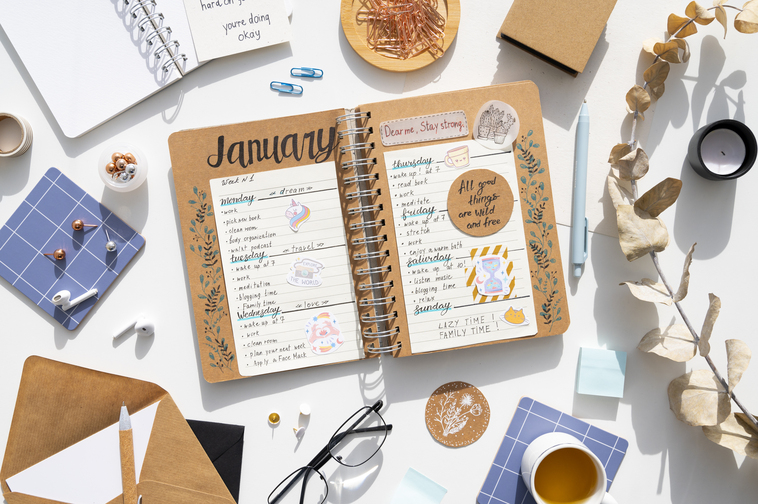 hard on
you're doing
okay
January
Week №1
monday
dream
• work
• pick new book
• clean room
• body organization
podcast
tuesday
travel
• wake up at 7
• work
• meditation
THE WORLD
• blogging time
• Family time
Wednesday
love
• wake up at 7
• work
• clean room
• plan your next week
• Apply a Face Mask
Dear me, Stay strong.
thursday
• wake up! at 7
• read book
• work
• meditate
friday
• wake up at 7
• stretch
• work
• enjoy a warm bath
saturday
• wake up at 10!
• listen music
• blogging time
• relax
sunday
LAZY TIME !
FAMILY TIME !
All good
things
are wild
and free